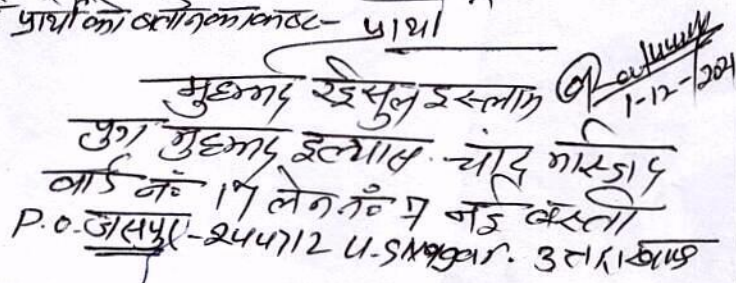 प्रार्थी को बताने का कष्ट- प्रार्थी
मुहम्मद रईसुल इस्लाम
1-12-2021
पुत्र मुहम्मद इल्यास. चांद मस्जिद
वार्ड नं 17 लेन नं 7 नई बस्ती
P.O. जसपुर-244712 U.S Nagar. उत्तराखण्ड